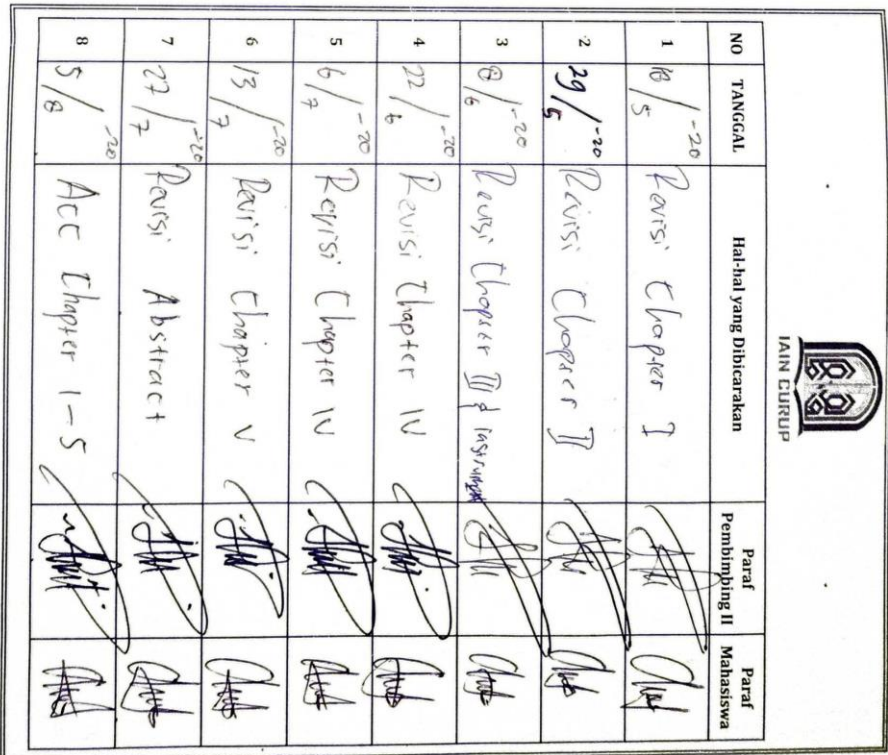 IAIN CURUP
NO TANGGAL Hal-hal yang Dibicarakan Paraf Pembimbing II Paraf Mahasiswa
1 18/5 -20 Revisi Chapter I
2 29/5 -20 Revisi Chapter II
3 8/6 -20 Revisi Chapter III & instrument
4 22/6 -20 Revisi Chapter IV
5 6/7 -20 Revisi Chapter IV
6 13/7 -20 Revisi Chapter V
7 27/7 -20 Revisi Abstract
8 5/8 -20 Acc Chapter 1-5